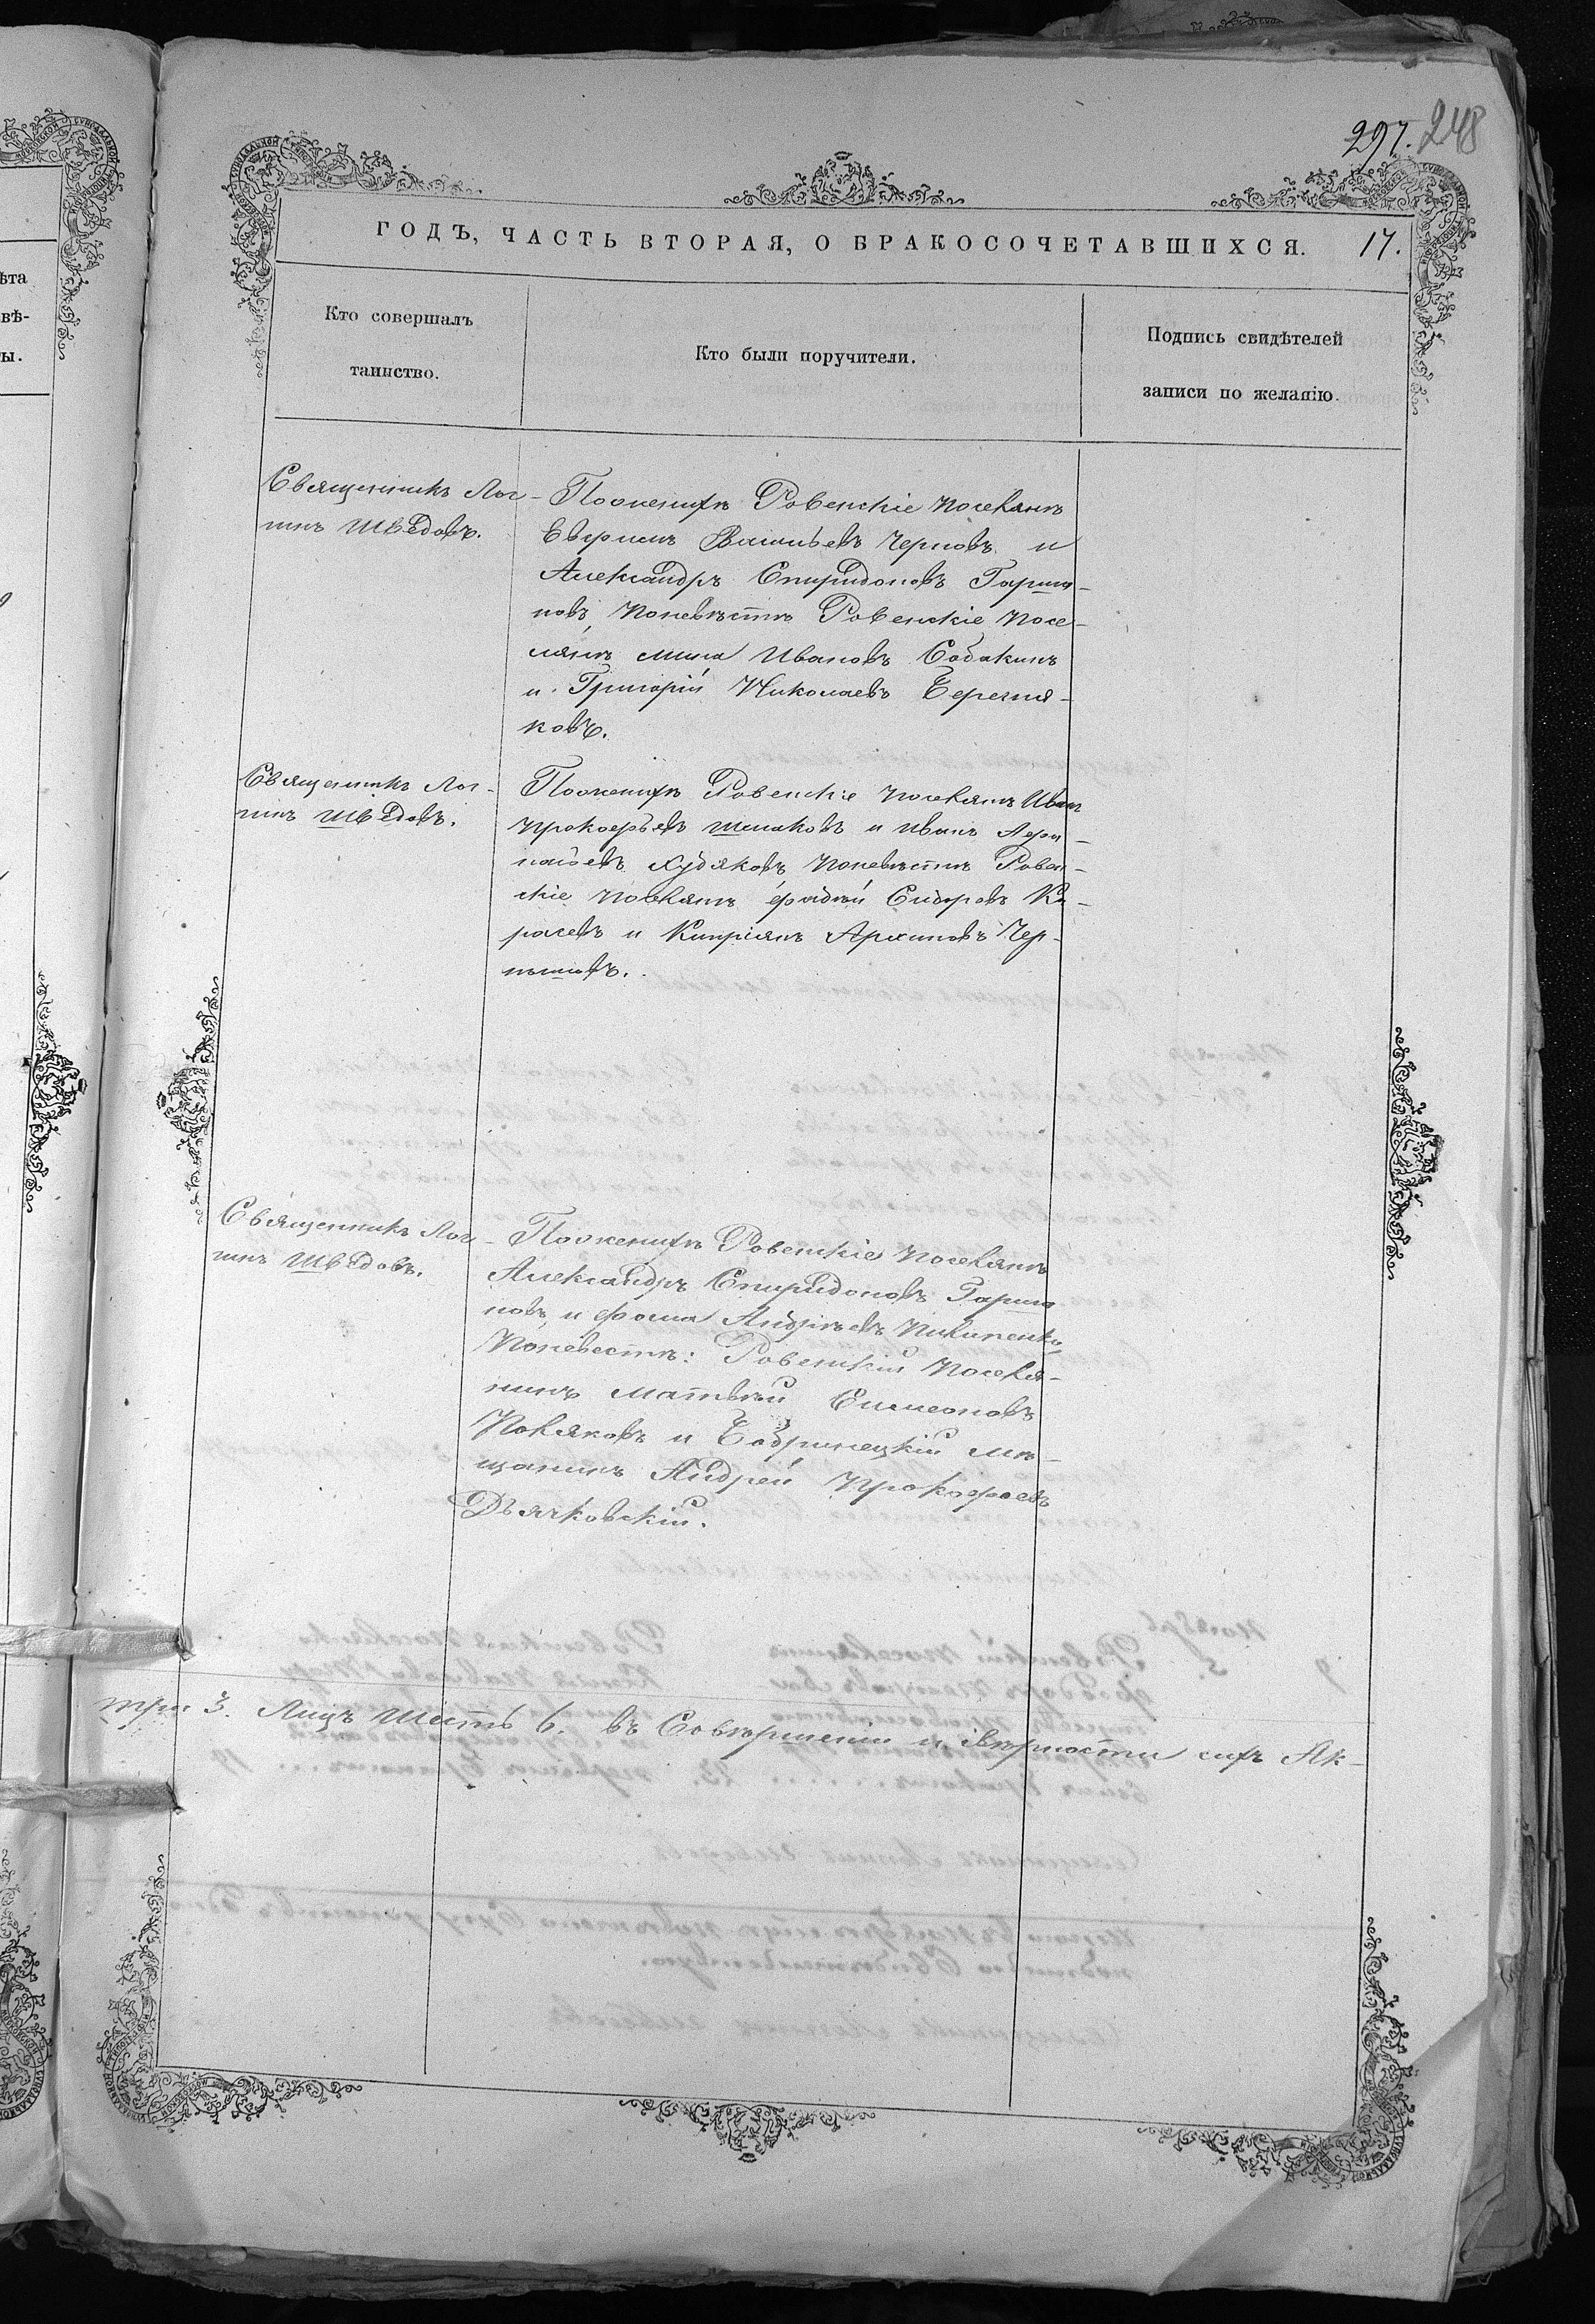 297. 248
ГОДЪ, ЧАСТЬ ВТОРАЯ, О БРАКОСОЧЕТАВШИХСЯ. 17.
Кто совершалъ
таинство.
Кто были поручители.
Подпись свидѣтелей
записи по желанію.
Священникъ Лог-
гинъ Шведовъ.
По женихѣ Ровенскіе поселяне
Васильевъ Черновъ и
Александръ Спиридоновъ Гарша-
новъ, по невѣстѣ Ровенскіе посе-
ляне Мина Ивановъ Собакинъ
и Григорій Николаевъ Березня-
ковъ.
Священникъ Лог-
гинъ Шведовъ.
По женихѣ Ровенскіе поселяне Иванъ
Прокофьевъ Шпаковъ и Иванъ Афа-
насьевъ Худяковъ, по невѣстѣ Ровен-
скіе поселяне Фадѣй Сидоровъ Ка-
расевъ и Кипріянъ Архиповъ Чер-
нышовъ.
Священникъ Лог-
гинъ Шведовъ.
По женихѣ Ровенскіе поселяне
Александръ Спиридоновъ Гарша
новъ, и Фома Андрѣевъ Пилипенко,
По невестѣ: Ровенскій поселя-
нинъ Матвѣй Симеоновъ
Поляковъ и Бобринецкій мѣ-
щанинъ Андрей Прокофьевъ
Дьячковскій.
три 3. Лицъ шесть 6. въ Совершеніи и вѣрности сихъ Ак-